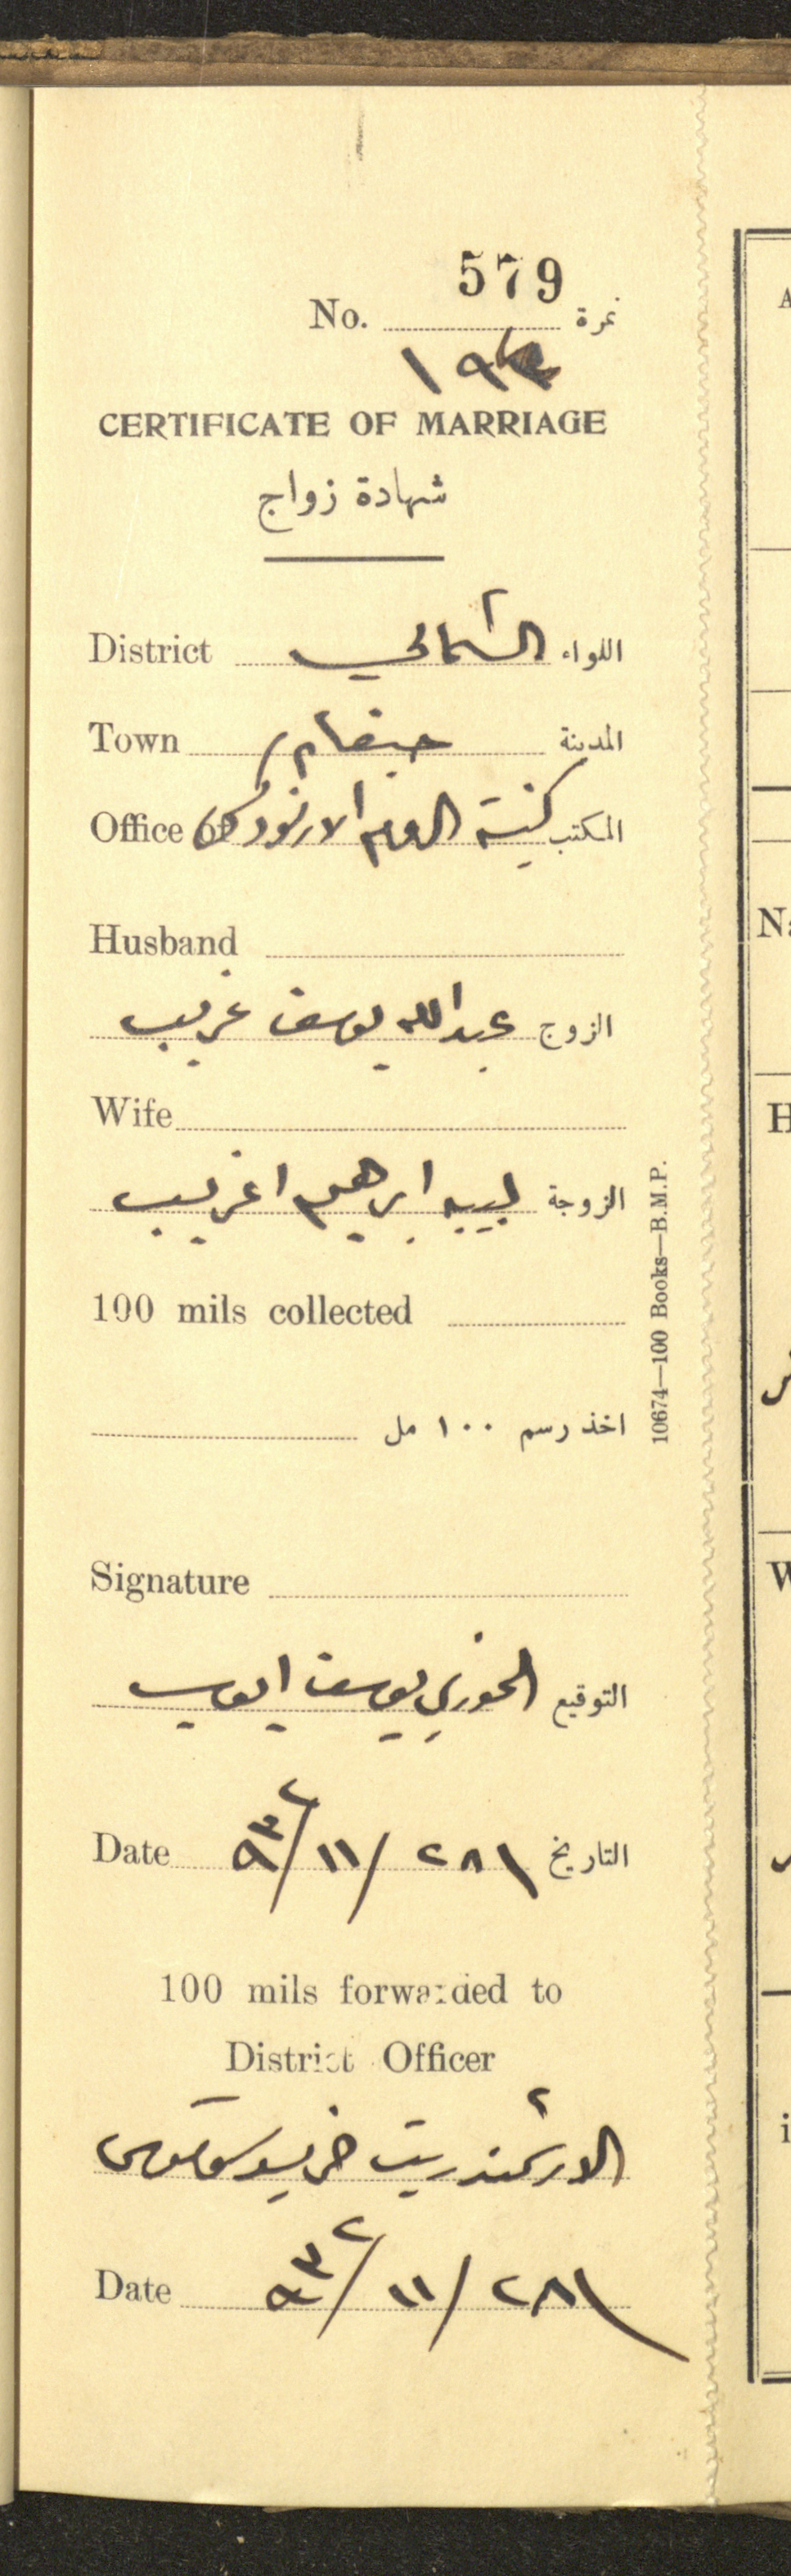 579
No. نمرة
١٩
CERTIFICATE OF MARRIAGE
شهادة زواج
District الشمالي اللواء
Town حيفا المدينة
Office of كنيسة الروم الارثوذكس المكتب
Husband
الزوج عبدالله يوسف غريب
Wife
الزوجة لبيبه ابرهيم اغريب
100 mils collected
اخذ رسم ١٠٠ مل
10674—100 Books—B.M.P.
Signature
التوقيع الخوري يوسف ايوب
Date ٢٨/١١/٩٣٢ التاريخ
100 mils forwarded to
District Officer
الارشمندريت
Date ٢٨/١١/٩٣٢